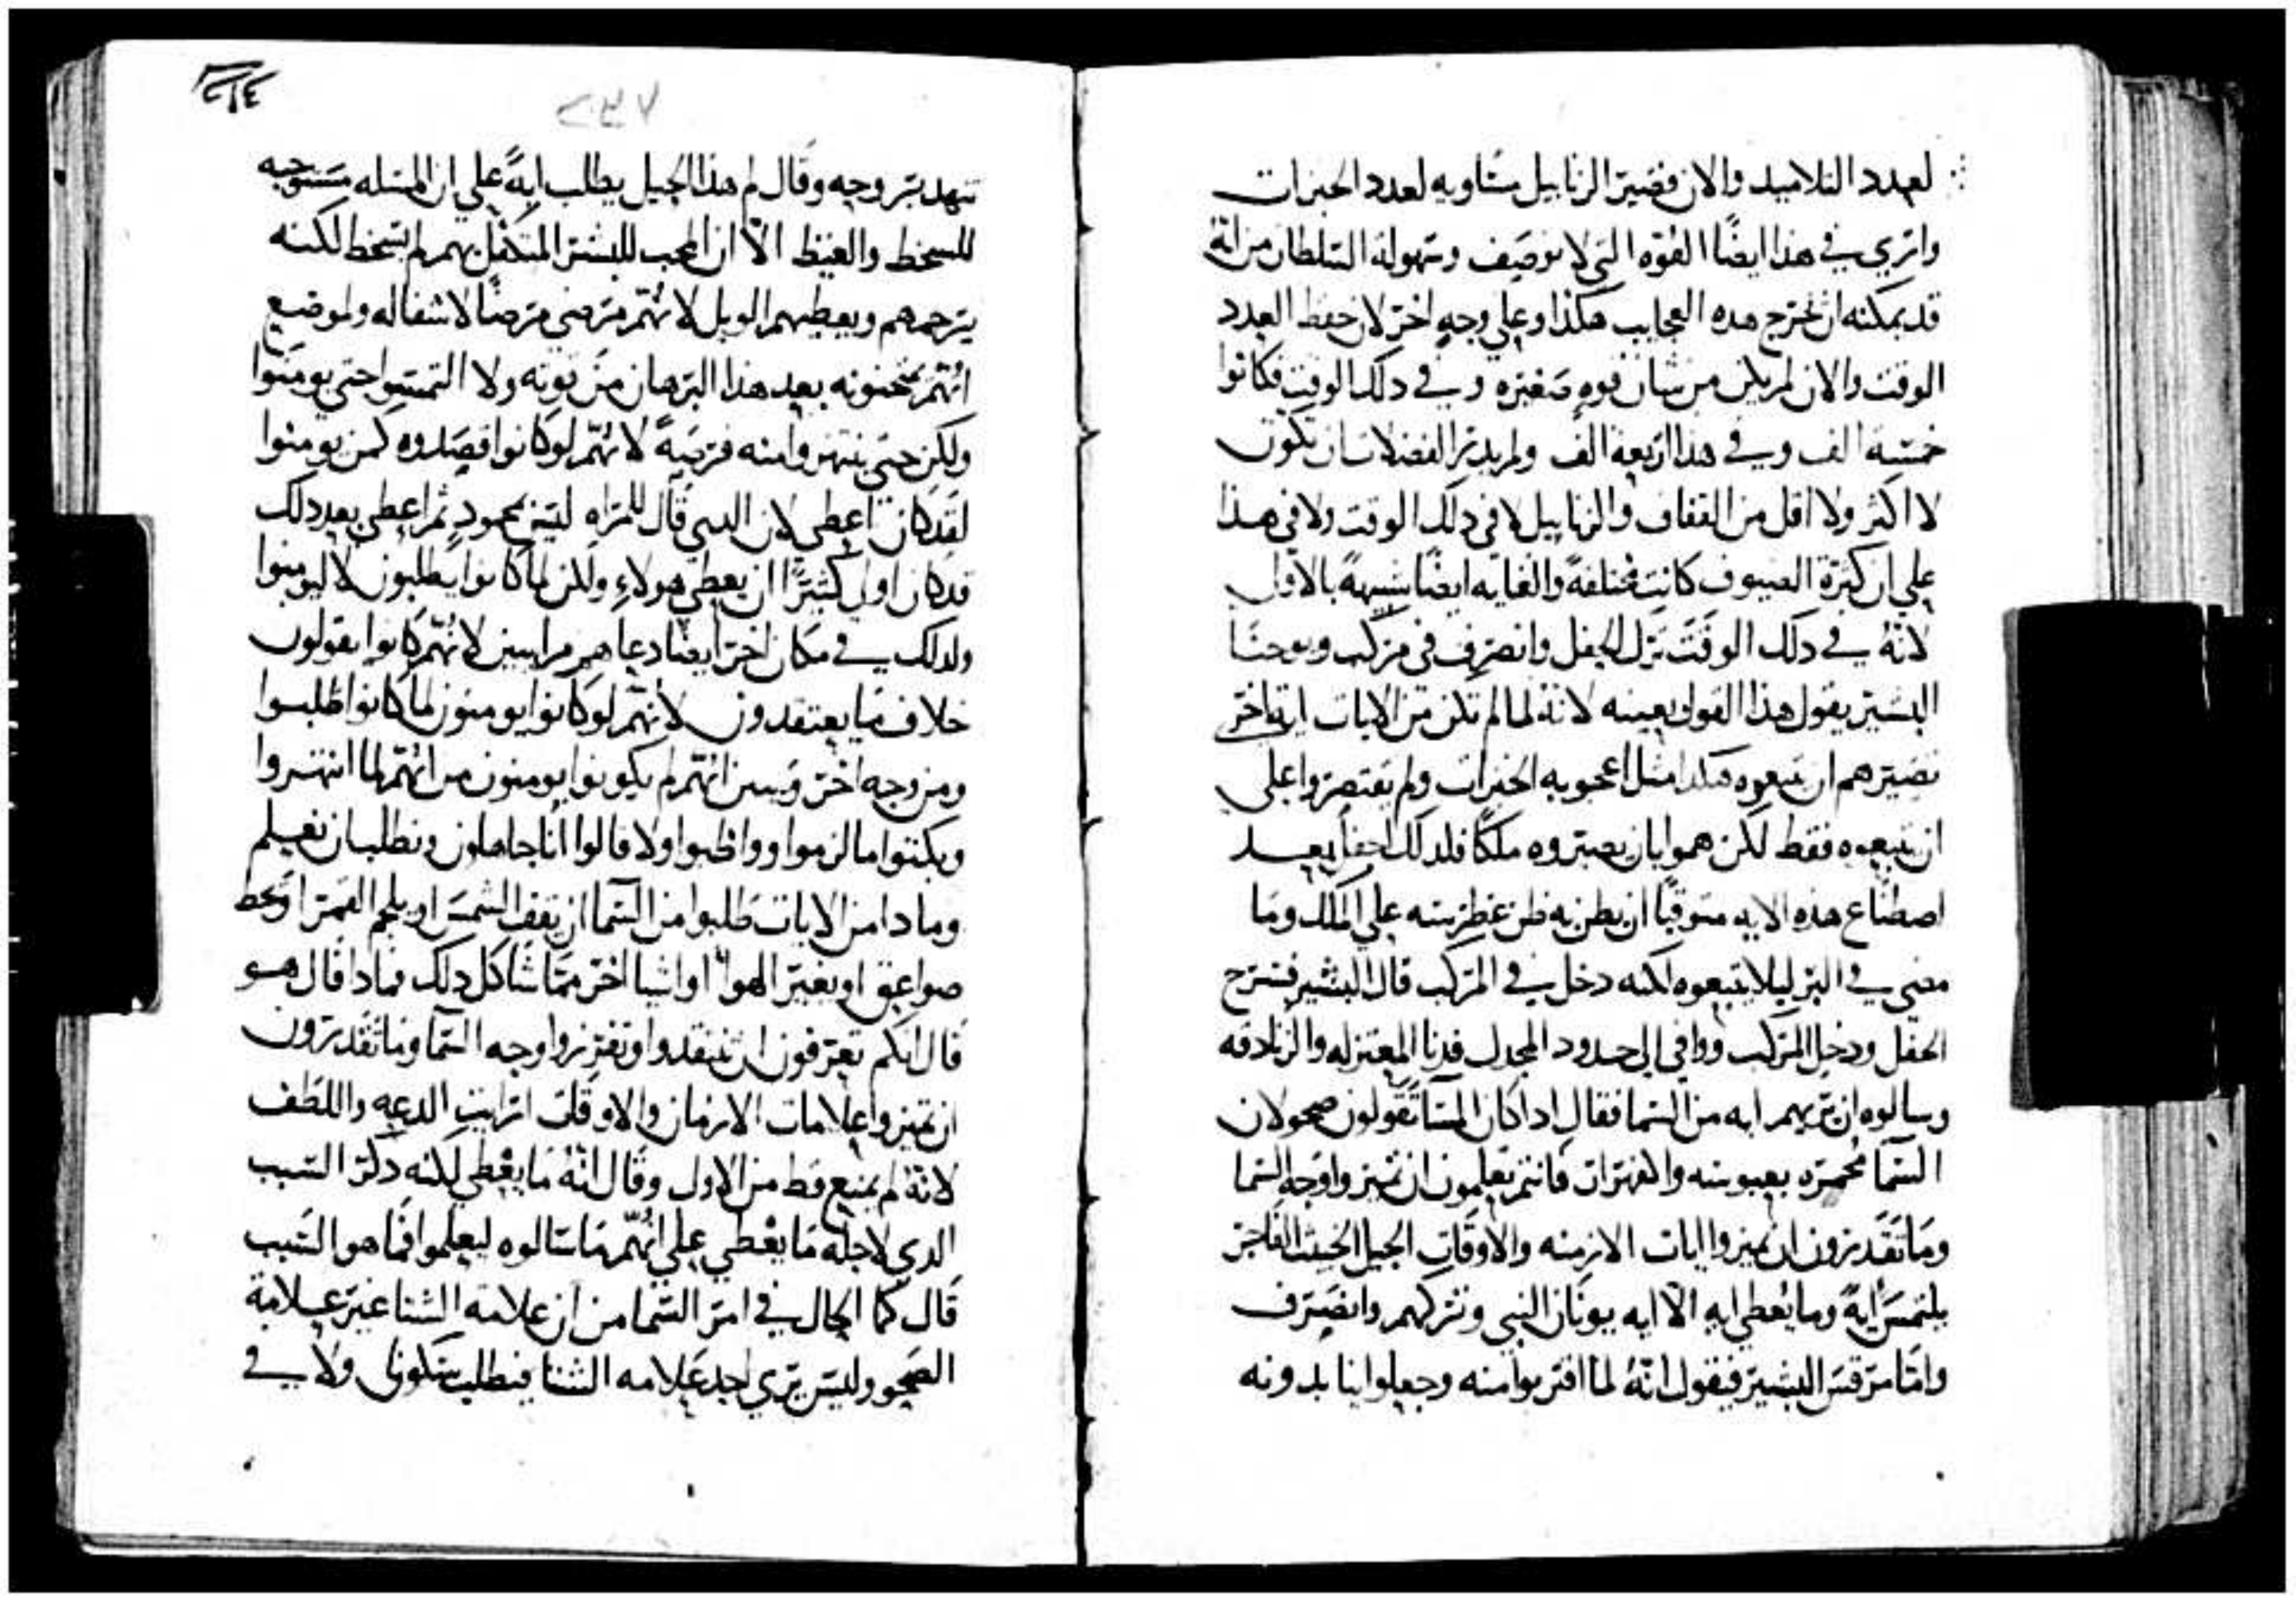 لعدد التلاميد والان فصير الزنابيل مساويه لعدد الخبزات
واتري في هذا ايضًا القوه التي لا توصف وسهولة السلطان من انهُ
قد يمكنه ان يخترج هده العجايب هكذا وعلي وجهٍ اخر لان حفظ العدد
الوقت والان لم يكن من شان قوه صغيره وفي دلك الوقت فكانوا
خمسة الف وفي هدا اربعة الف ولم يدير الفضلات ان تكون
لا اكثر ولا اقل من القفاف والزنابيل لا في دلك الوقت ولا في هذا
علي ان كثرة الصيوف كانت مختلفةً والغايه ايضًا شبيهةً بالاول
لانهُ في دلك الوقت ترك الجفل وانصرف في مركب ويوحنا
البشير يقول هذا القول بعينه لانه لما لم تكن من الايات اية اخر
تصيرهم ان يتبعوه هكدا مثل اعجوبه الخبزات ولم يقتصروا علي
ان يتبعوه فقط لكن هموا بان يصيروه ملكًا فلدلك اجفل بعد
اصطناع هذه الايه متوقيًا ان يظن به ظن غطرسه علي الملك وما
مضي في البر ليلا يتبعوه لكنه دخل في المركب قال البشير فسرح
الجفل ودخل المركب ووافي الي حدود المجدل فدنا المعتزله والزنادقه
وسالوه ان يريهم ايه من السما فقال ادا كان المسا تقولون صحو لان
السما محمره بعبوسه والغبرات فانتم تعلمون ان تميزوا وجه السما
وما تقدرون ان تميزوا ايات الازمنه والاوقات الجيل الخبيث الفاجر
يلتمس ايةً وما يُعطي ايه الا ايه يونان النبي وتركهم وانصرف
وامّا مرقس البشير فيقول انهُ لما اقتربوا منه وجعلوا ينابدونه
تنهد بتروحه وقال لم هذا الجيل يطلب ايةً علي ان المسله مستوجبه
للسخط والغيظ الّا ان المحب للبشر المتكفل بهم لم يسخط لكنه
يترحمهم ويعطيهم الويل لانهّم مرضي مرضًا لا شفا له ولموضع
انُهم يمتحنونه بعد هذا البرهان من قوته ولا التمسوا حتي يومنوا
ولكن حتي ينتهروا منه فريةً لانهّم لو كانوا قصدوه كمن يومنوا
لقد كان اعطي لان الدي قال للمراه ليس بمحمودٍ ثم اعطي بعد دلك
قد كان اولي كثيرًا ان يعطي هولاءِ ولكن لما كانوا يطلبون لا ليومنوا
ولدلك في مكان اخر ايضا دعاهم مراييين لانُهّم كانوا يقولون
خلاف ما يعتقدون لانُهم لو كانوا يومنون لما كانوا طلبوا
ومن وجه اخر وتبين انهم لم يكونوا يومنون من انُهّم لما انتهروا
وبكتوا ما لزموا وواظبوا ولا قالوا انّا جاهلون ونطلب ان نعلم
وما دا من الايات طلبوا من السما ان يقف الشمس او يلجم القمر او يحط
صواعق او يغير الهوا او اشيا اخر ممّا شاكل دلك فمادا قال هو
قال انكم تعرفون ان تنتقدوا وتفرزوا وجه السما وما تقدرون
ان تميزوا علامات الازمان والاوقات ارايت الدعه واللطف
لانهُ لم يمنع قط من الاول وقال انهُ ما يُعْطي لكنه دكر السبب
الدي لاجله ما يعْطي علي انُهّم ما سالوه ليعلموا فما هو السبب
قال كما الحال في امر السما من ان علامه الشتا غير علامة
الصحو وليس يري احد علامه الشتا فيطلب سكونا ولا في